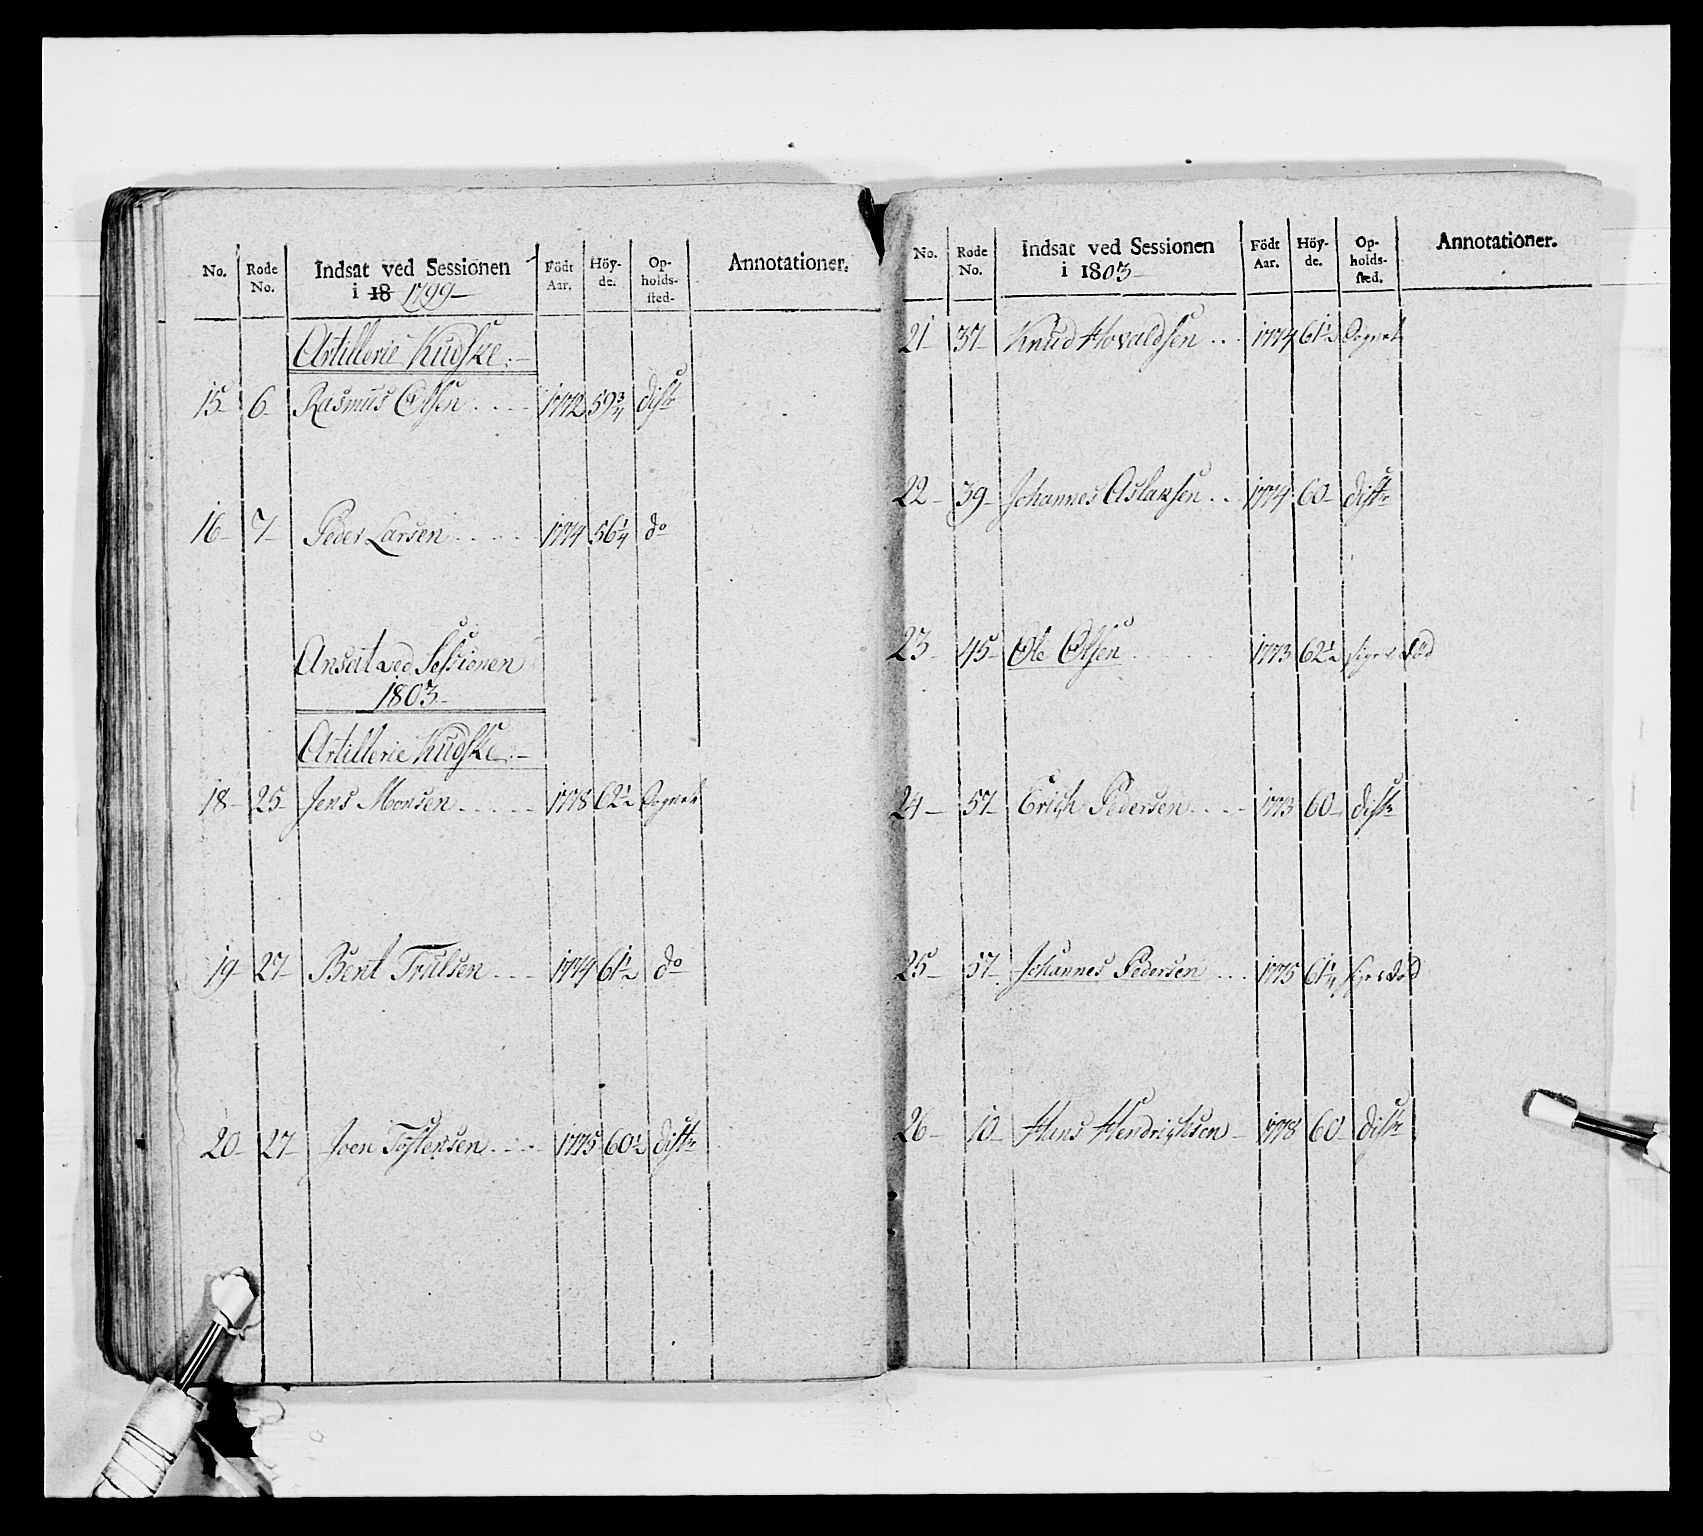 No. Rode No. Indsat ved Sessionen i 18 1799 Födt Aar. Höy-de. Op-holds-sted. Annotationer.
Artillerie Kudske.
15 6 Rasmus Olsen 1772 59 3/4 distr
16 7 Peder Larsen 1774 56 1/4 do
Ansat ved Sessionen
1803
Artillerie Kudske.
18 25 Jens Monsen 1778 62 1/2 Sognet
19 27 Bent Trulsen 1774 61 1/2 do
20 27 Iven Tostensen 1775 60 1/2 distr
No. Rode No. Indsat ved Sessionen i 1803 Födt Aar. Höy-de. Op-holds-sted. Annotationer.
21 37 Knud Hovaldsen 1774 61 1/2 Sognet
22 39 Johannes Aslaksen 1774 60 distr
23 45 Ole Olsen 1773 62 1/2 siges död
24 57 Erich Pedersen 1773 60 distr
25 57 Johannes Pedersen 1775 61 1/4 siges död
26 10 Hans Hendrichsen 1778 60 distr